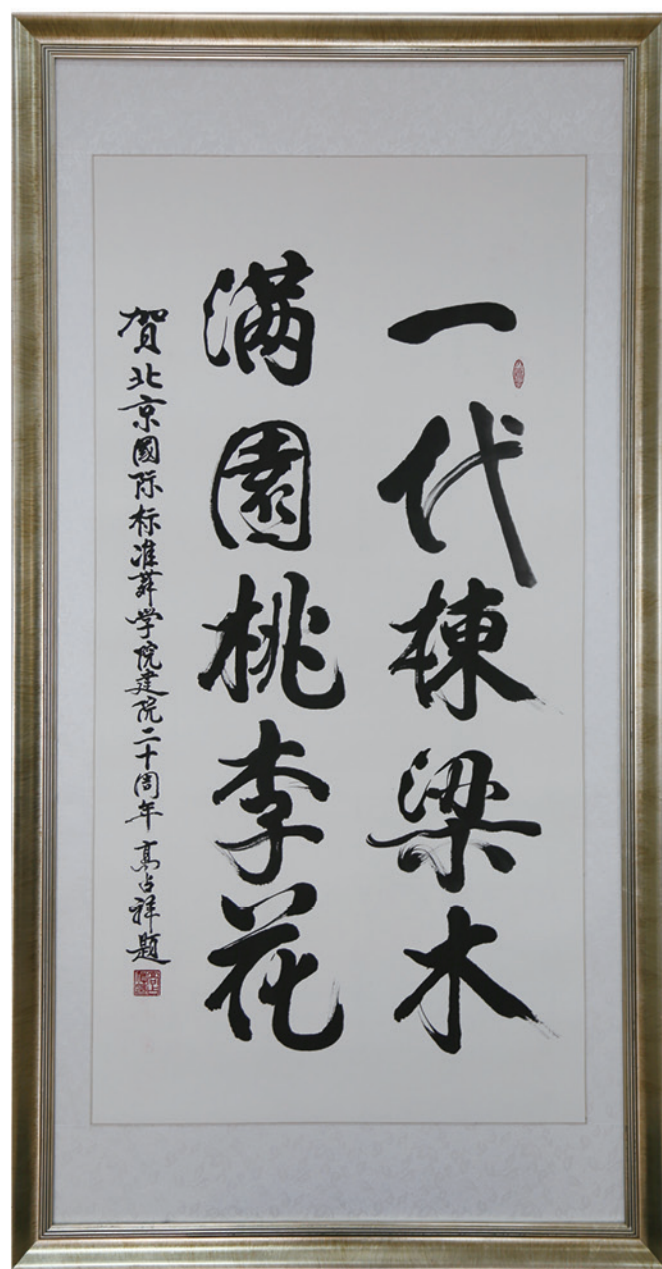 一代棟梁木
满園桃李花
賀北京國际标准舞学院建院二十周年 高占祥题